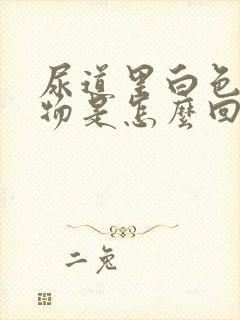 尿道里白色
物是怎麼回
二兔